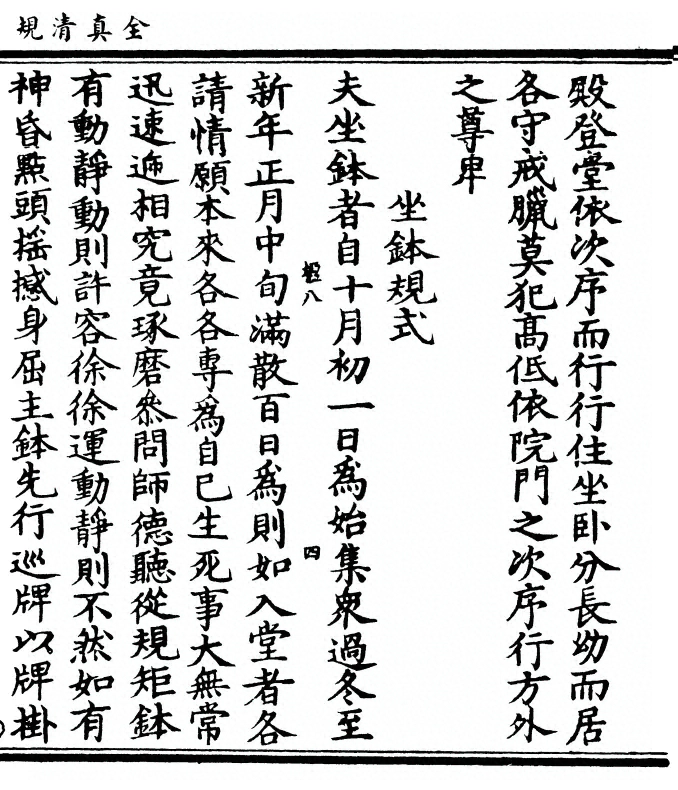 全真清規
殿登堂依次序而行行住坐卧分長幼而居
各守戒臘莫犯髙低依院門之次序行方外
之尊卑
坐鉢規式
夫坐鉢者自十月初一日爲始集衆過冬至
楹八
四
新年正月中旬滿散百日爲則如入堂者各
請情願本來各各專爲自己生死事大無常
迅速遞相究竟琢磨叅問師德聽從規矩鉢
有動靜動則許容徐徐運動靜則不然如有
神昏㸃頭揺撼身屈主鉢先行巡牌以牌掛